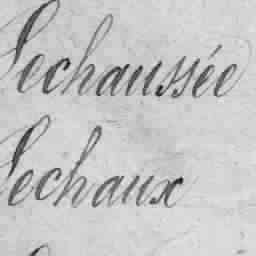 Lechaussée
Lechaux